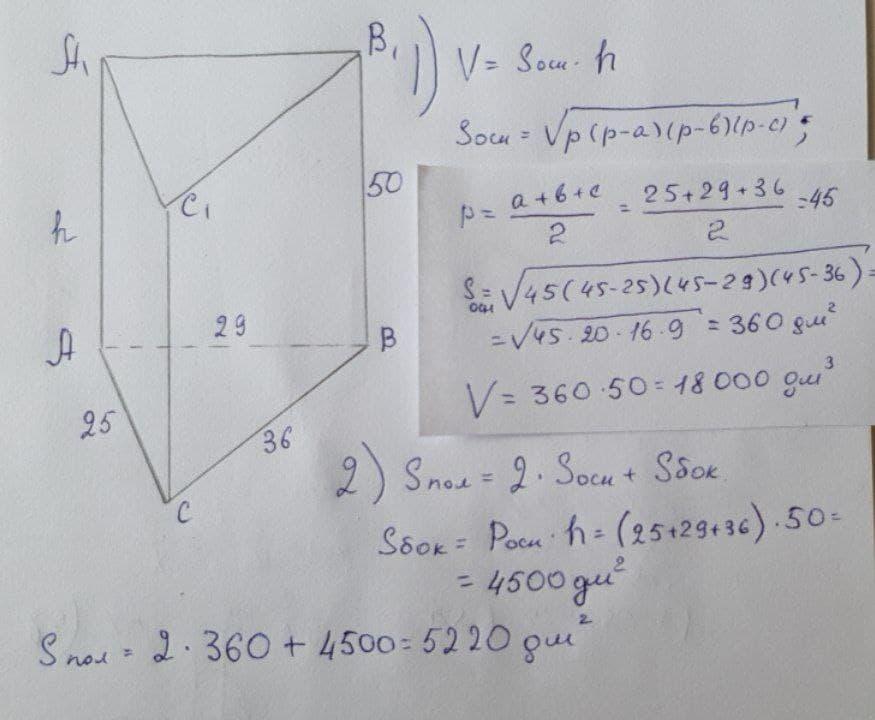 A₁
B₁
C₁
h
50
A
29
B
25
36
C
1) V = Sосн · h
Sосн = √p(p-a)(p-b)(p-c) ;
p = a+b+c/2 = 25+29+36/2 = 45
Sосн = √45(45-25)(45-29)(45-36) =
= √45·20·16·9 = 360 дм²
V = 360·50 = 18000 дм³
2) Sпол = 2·Sосн + Sбок
Sбок = Pосн·h = (25+29+36)·50 =
= 4500 дм²
Sпол = 2·360 + 4500 = 5220 дм²